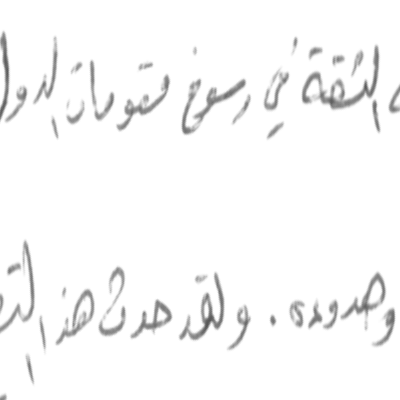 الثقة في رسوخ مقومات الدول
وحدوده. ولقد حدث هذا